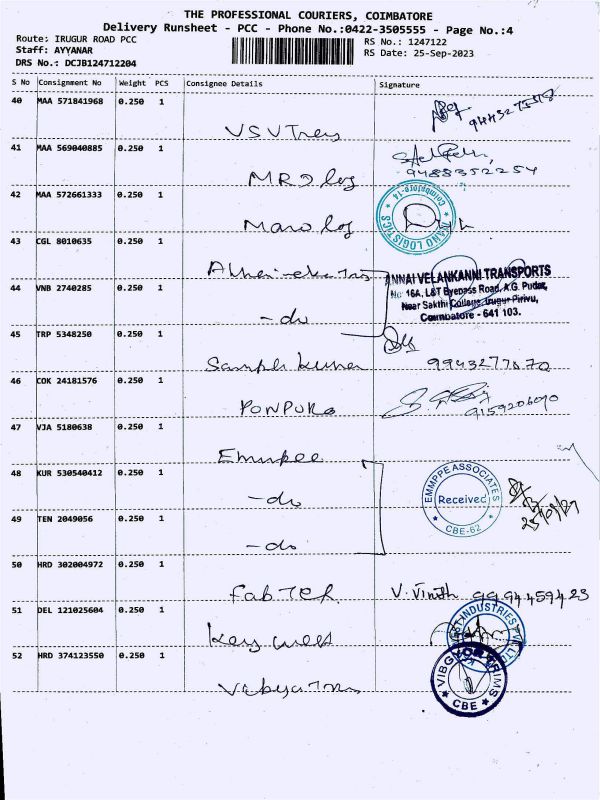 THE PROFESSIONAL COURIERS, COIMBATORE
Delivery Runsheet - PCC - Phone No.:0422-3505555 - Page No.:4
Route: IRUGUR ROAD PCC
RS No.: 1247122
Staff: AYYANAR
RS Date: 25-Sep-2023
DRS No.: DCJB124712204
S No Consignment No Weight PCS Consignee Details Signature
40 MAA 571841968 0.250 1
VSVTrex
41 MAA 569040885 0.250 1
9488352254
MRO log
42 MAA 572661333 0.250 1
Mano log
Coimbatore-14
NANO LOGISTICS
43 CGL 8010635 0.250 1
ANNAI VELANKANNI TRANSPORTS
No 16A, L&T Byepass Road, A.G. Pudur,
Near Sakthi College, Irugur Pirivu,
Coimbatore - 641 103.
44 VNB 2740285 0.250 1
-do
45 TRP 5348250 0.250 1
Sampth kumar 9943277070
46 COK 24181576 0.250 1
PONPURE 9159206090
47 VJA 5180638 0.250 1
Emmpee
48 KUR 530540412 0.250 1
-do
EMMPPE ASSOCIATES
Received
CBE-62
49 TEN 2049056 0.250 1
-do
50 HRD 302004972 0.250 1
FabTek V. Vinith 9994459423
51 DEL 121025604 0.250 1
Key west
52 HRD 374123550 0.250 1
CBE